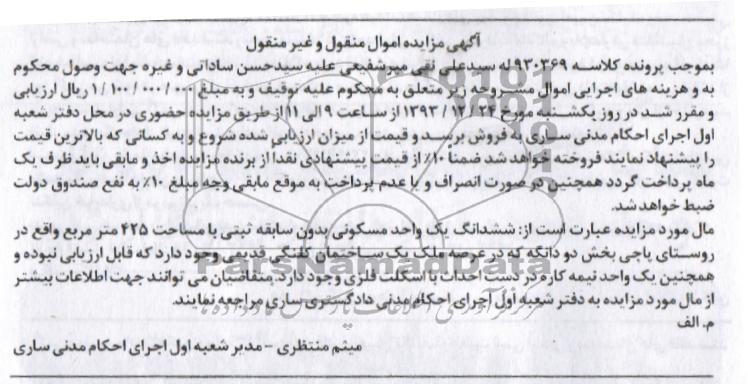 آگهی مزایده اموال منقول و غیر منقول
بموجب پرونده کلاسه ۹۳۰۳۶۹ له سیدعلی نقی میرشفیعی علیه سیدحسن ساداتی و غیره جهت وصول محکوم
به و هزینه های اجرایی اموال مشروحه زیر متعلق به محکوم علیه توقیف و به مبلغ ۱/۱۰۰/۰۰۰/۰۰۰ ریال ارزیابی
و مقرر شد در روز یکشنبه مورخ ۱۳۹۳/۱۲/۲۴ از ساعت ۹ الی ۱۱ از طریق مزایده حضوری در محل دفتر شعبه
اول اجرای احکام مدنی ساری به فروش برسد و قیمت از میزان ارزیابی شده شروع و به کسانی که بالاترین قیمت
را پیشنهاد نمایند فروخته خواهد شد ضمنا ۱۰٪ از قیمت پیشنهادی نقدا از برنده مزایده اخذ و مابقی باید ظرف یک
ماه پرداخت گردد همچنین در صورت انصراف و یا عدم پرداخت به موقع مابقی وجه مبلغ ۱۰٪ به نفع صندوق دولت
ضبط خواهد شد.
مال مورد مزایده عبارت است از: ششدانگ یک واحد مسکونی بدون سابقه ثبتی با مساحت ۴۲۵ متر مربع واقع در
روستای پاجی بخش دو دانگه که در عرصه ملک یک ساختمان کلنگی قدیمی وجود دارد که قابل ارزیابی نبوده و
همچنین یک واحد نیمه کاره در دست احداث با اسکلت فلزی وجود دارد. متقاضیان می توانند جهت اطلاعات بیشتر
از مال مورد مزایده به دفتر شعبه اول اجرای احکام مدنی دادگستری ساری مراجعه نمایند.
م. الف
میثم منتظری - مدیر شعبه اول اجرای احکام مدنی ساری
ParsNamadData